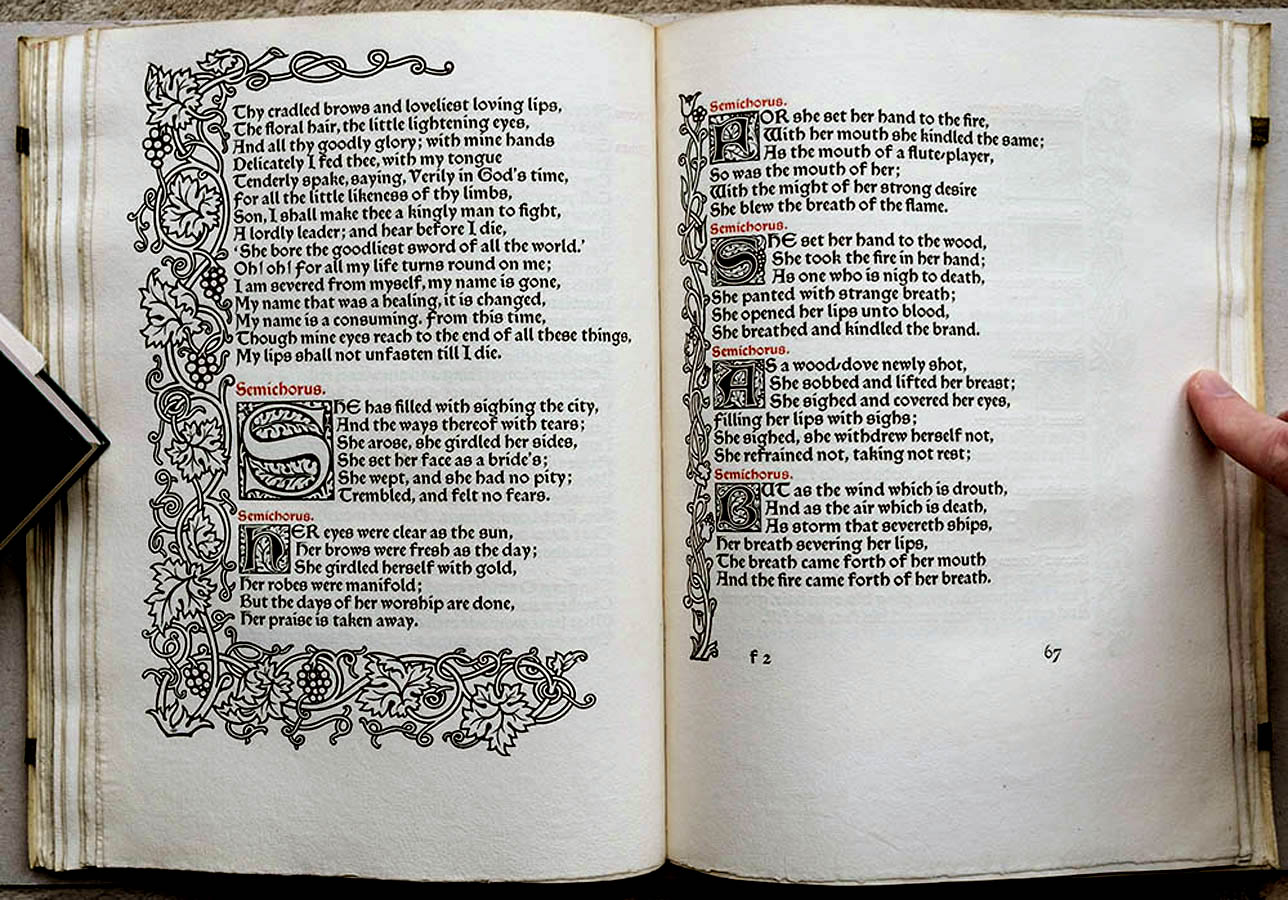 Thy cradled brows and loveliest loving lips,
The floral hair, the little lightening eyes,
And all thy goodly glory; with mine hands
Delicately I fed thee, with my tongue
Tenderly spake, saying, Verily in God's time,
For all the little likeness of thy limbs,
Son, I shall make thee a kingly man to fight,
A lordly leader; and hear before I die,
'She bore the goodliest sword of all the world.'
Oh! oh! For all my life turns round on me;
I am severed from myself, my name is gone,
My name that was a healing, it is changed,
My name is a consuming. From this time,
Though mine eyes reach to the end of all these things,
My lips shall not unfasten till I die.
Semichorus.
SHE has filled with sighing the city,
And the ways thereof with tears;
She arose, she girdled her sides,
She set her face as a bride's;
She wept, and she had no pity;
Trembled, and felt no fears.
Semichorus.
HER eyes were clear as the sun,
Her brows were fresh as the day;
She girdled herself with gold,
Her robes were manifold;
But the days of her worship are done,
Her praise is taken away.
Semichorus.
FOR she set her hand to the fire,
With her mouth she kindled the same;
As the mouth of a flute-player,
So was the mouth of her;
With the might of her strong desire
She blew the breath of the flame.
Semichorus.
SHE set her hand to the wood,
She took the fire in her hand;
As one who is nigh to death,
She panted with strange breath;
She opened her lips unto blood,
She breathed and kindled the brand.
Semichorus.
AS a wood-dove newly shot,
She sobbed and lifted her breast;
She sighed and covered her eyes,
Filling her lips with sighs;
She sighed, she withdrew herself not,
She refrained not, taking not rest;
Semichorus.
BUT as the wind which is drouth,
And as the air which is death,
As storm that severeth ships,
Her breath severing her lips,
The breath came forth of her mouth
And the fire came forth of her breath.
f 2
67